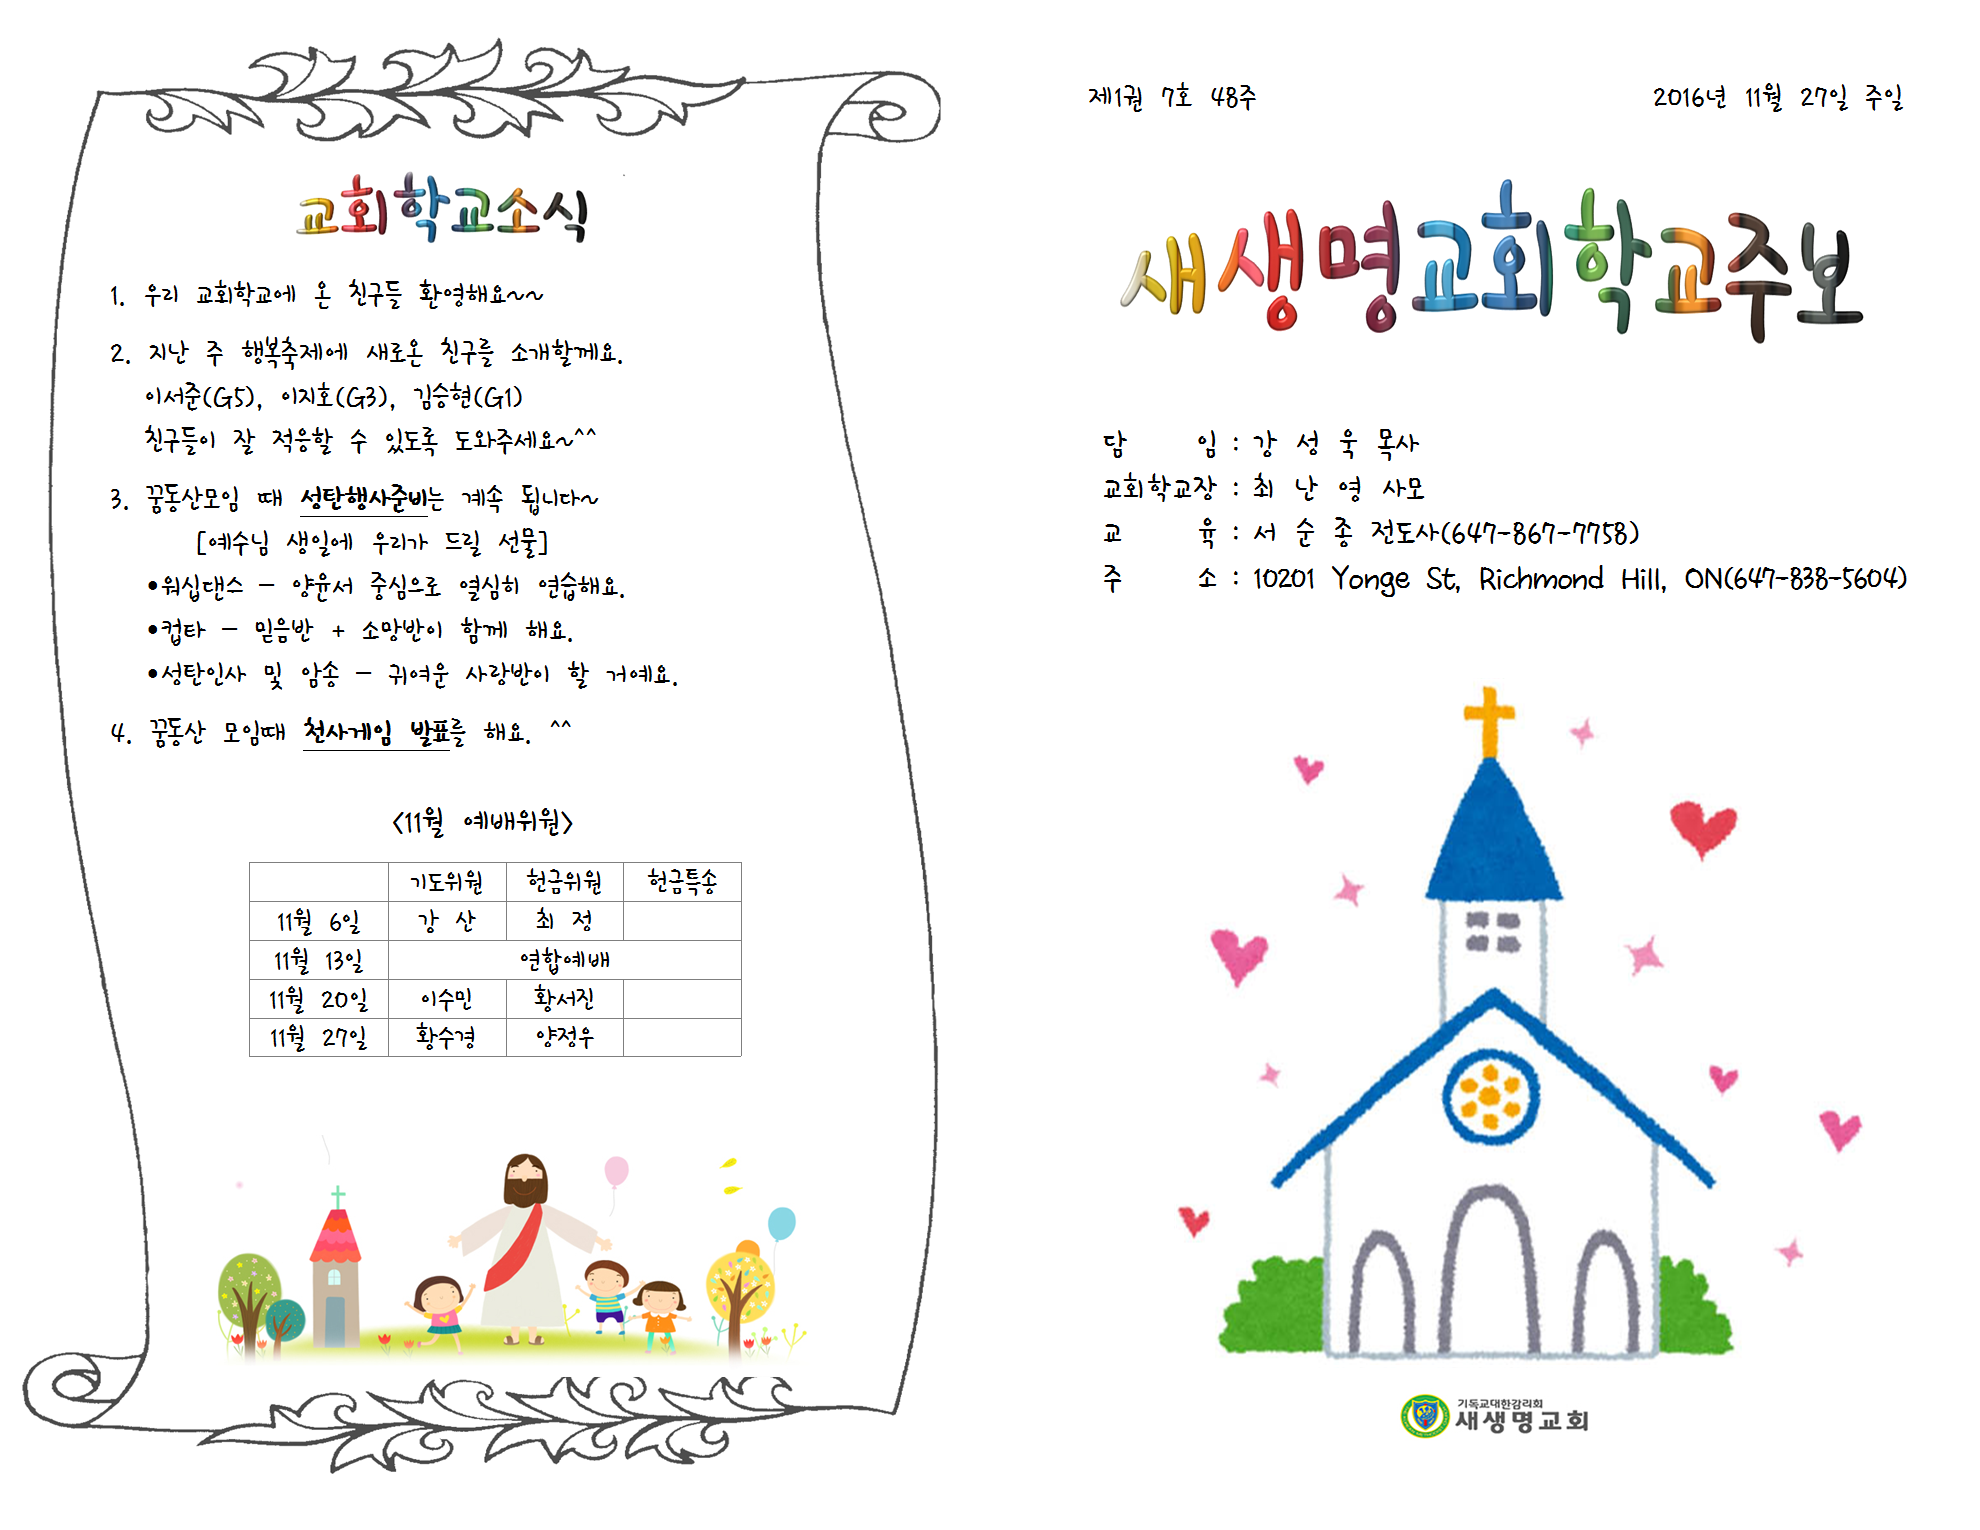 교회학교소식
1. 우리 교회학교에 온 친구들 환영해요~~
2. 지난 주 행복축제에 새로온 친구를 소개할께요.
이서준(G5), 이지호(G3), 김승현(G1)
친구들이 잘 적응할 수 있도록 도와주세요~^^
3. 꿈동산모임 때 성탄행사준비는 계속 됩니다~
[예수님 생일에 우리가 드릴 선물]
•워십댄스 - 양윤서 중심으로 열심히 연습해요.
•컵타 - 믿음반 + 소망반이 함께 해요.
•성탄인사 및 암송 - 귀여운 사랑반이 할 거예요.
4. 꿈동산 모임때 천사게임 발표를 해요. ^^
<11월 예배위원>
기도위원 헌금위원 헌금특송
11월 6일 강 산 최 정
11월 13일 연합예배
11월 20일 이수민 황서진
11월 27일 황수경 양정우
제1권 7호 48주 2016년 11월 27일 주일
새생명교회학교주보
담 임 : 강 성 욱 목사
교회학교장 : 최 난 영 사모
교 육 : 서 순 종 전도사(647-867-7758)
주 소 : 10201 Yonge St, Richmond Hill, ON(647-838-5604)
기독교대한감리회
새생명교회